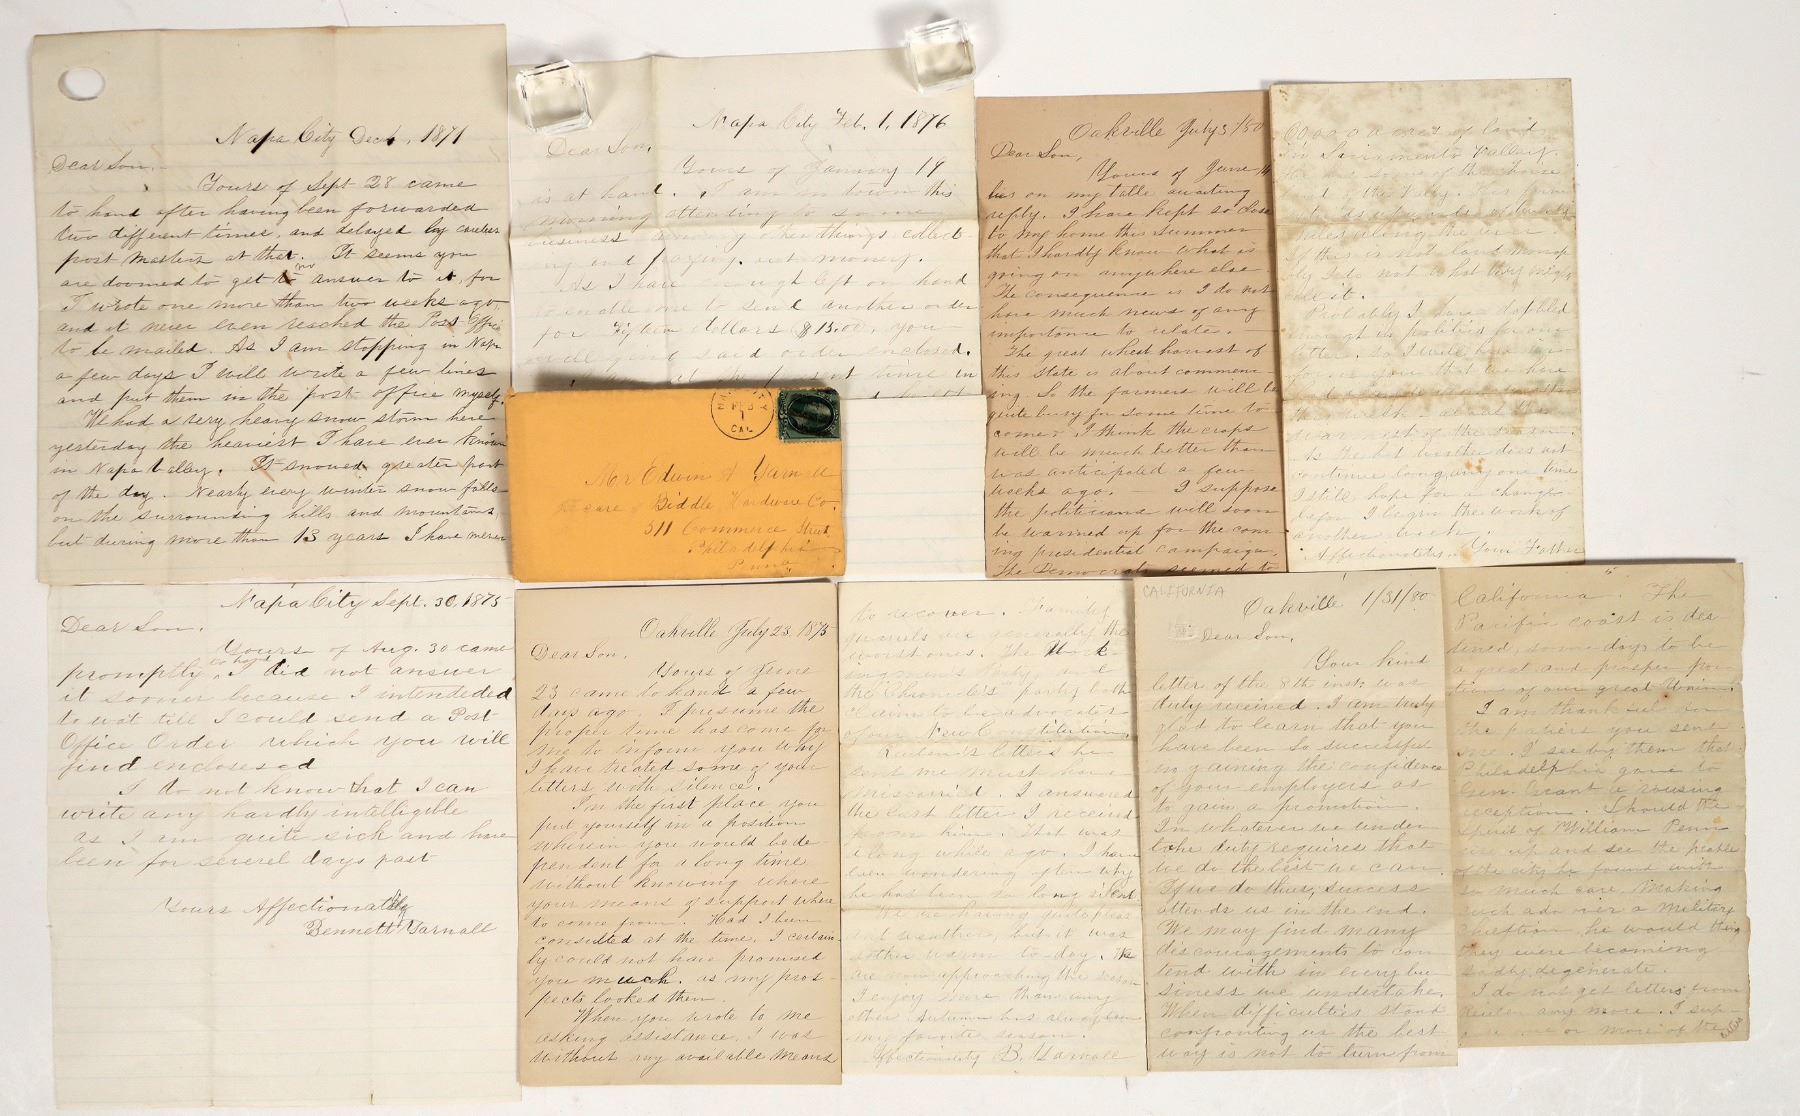 Napa City Dec 4, 1871
Dear Son,
Yours of Sept 28 came
to hand after having been forwarded
two different times, and delayed by careless
post masters at that. It seems you
are doomed to get no answer to it, for
I wrote one more than two weeks ago,
and it never even reached the Post Office
to be mailed. As I am stopping in Napa
a few days I will write a few lines
and put them in the post office myself.
We had a very heavy snow storm here
yesterday the heaviest I have ever known
in Napa Valley. It snowed greater part
of the day. Nearly every winter snow falls
on the surrounding hills and mountains,
but during more than 13 years I have never
Napa City Feb. 1, 1876
Dear Son,
Yours of January 19
is at hand. I am in town this
morning attending to some
business among other things collect-
ing and paying out money.
As I have enough left on hand
to enable me to send another order
for Fifteen dollars ($15.00), you
will find said order enclosed.
NAPA CITY
FEB
1
CAL.
Mr Edwin A Yarnall
care of Biddle Hardware Co.
511 Commerce Street
Philadelphia
Penna
Oakville July 3/80
Dear Son,
Yours of June 14
lies on my table awaiting
reply. I have kept so close
to my home this Summer
that I hardly know what is
going on anywhere else.
The consequence is I do not
have much news of any
importance to relate. —
The great wheat harvest of
this State is about commenc-
ing. So the farmers will be
quite busy for some time to
come. I think the crops
will be much better than
was anticipated a few
weeks ago. — I suppose
the politicians will soon
be warmed up for the com-
ing presidential campaign.
The Democrats seemed to
60,000 acres of land
in Sacramento Valley.
along the river.
If this is not land monop-
oly I do not what they might
call it.
Probably I have dabbled
enough in politics for one
letter, so I will
you that we have
this week - about the
of the season.
As the hot weather does not
continue long any one time
I still hope for a change
before I begin the work of
another week.
Affectionately Your Father
Napa City Sept. 30, 1875
Dear Son,
Yours of Aug. 30 came
promptly to hand, I did not answer
it sooner because I intendeded
to wait till I could send a Post
Office Order which you will
find enclosesed
I do not know that I can
write any hardly intelligible
as I am quite sick and have
been for severel days past
Yours Affectionately
Bennett Yarnall
Oakville July 23, 1875
Dear Son,
Yours of June
23 came to hand a few
days ago. I presume the
proper time has come for
me to inform you why
I have treated some of your
letters with silence.
In the first place you
put yourself in a position
wherein you would be de-
pendent for a long time
without knowing where
your means of support where
to come from. Had I been
consulted at the time, I certain-
ly could not have promised
you much, as my pros-
pects looked then.
When you wrote to me
asking assistance, I was
without any available means
to recover. Family
quarrels are generally the
worst ones. The Work-
ingmen's Party and
the Chronicle's party both
claim to be advocates
of our New Constitution.
Reuben's letters he
sent me must have
miscarried. I answered
the last letter I received
from him. That was
a long while ago. I have
been wondering often why
he has been so long silent.
We are having quite pleas-
ant weather, but it was
rather warm to-day. We
are now approaching the season
I enjoy more than any
other. Autumn has always been
my favorite season.
Affectionately B. Yarnall
CALIFORNIA
Oakville 1/31/80
Dear Son,
Your kind
letter of the 8th inst. was
duly received. I am truly
glad to learn that you
have been so successful
in gaining the confidence
of your employers as
to gain a promotion.
In whatever we under-
take duty requires that
we do the best we can.
If we do thus, success
attends us in the end.
We may find many
discouragements to con-
tend with in every bu-
siness we undertake.
When difficulties stand
confronting us the best
way is not to turn from
5
California. The
Pacific coast is des-
tined, some day to be
a great and prosper por-
tion of our great Union.
I am thankful for
the papers you sent
me. I see by them that
Philadelphia gave to
Gen. Grant a rousing
reception. Should the
spirit of William Penn
rise up and see the people
of the city he found with
so much care, making
such ado over a military
chieftion, he would think
they were becoming
sadly degenerate.
I do not get letters from
Reuben any more. I sup-
pose one or more of the